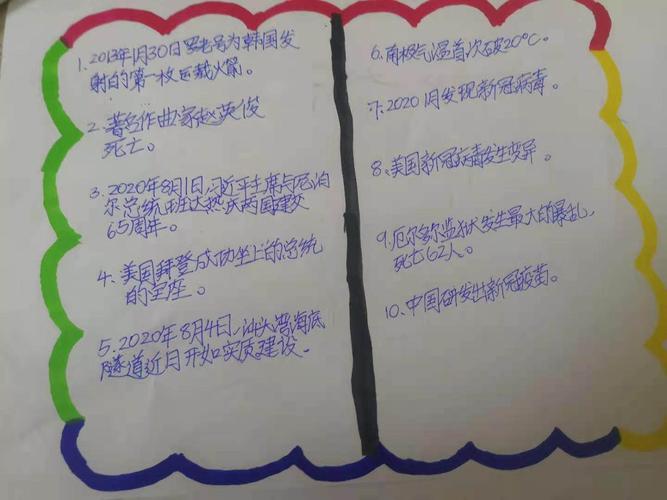 1、2013年1月30日罗老号为韩国发
射的第一枚运载火箭。
2、著名作曲家赵英俊
死亡。
3、2020年8月1日,习近平主席与尼泊
尔总统班达热庆两国建交
65周年。
4、美国拜登成功坐上的总统
的宝座。
5、2020年8月4日,汕头湾海底
隧道近日开如实质建设。
6、南极气温首次破20°C。
7、2020 1月发现新冠病毒。
8、美国新冠病毒发生变异。
9、厄尔多尔监狱发生最大的暴乱,
死亡62人。
10、中国研发出新冠疫苗。